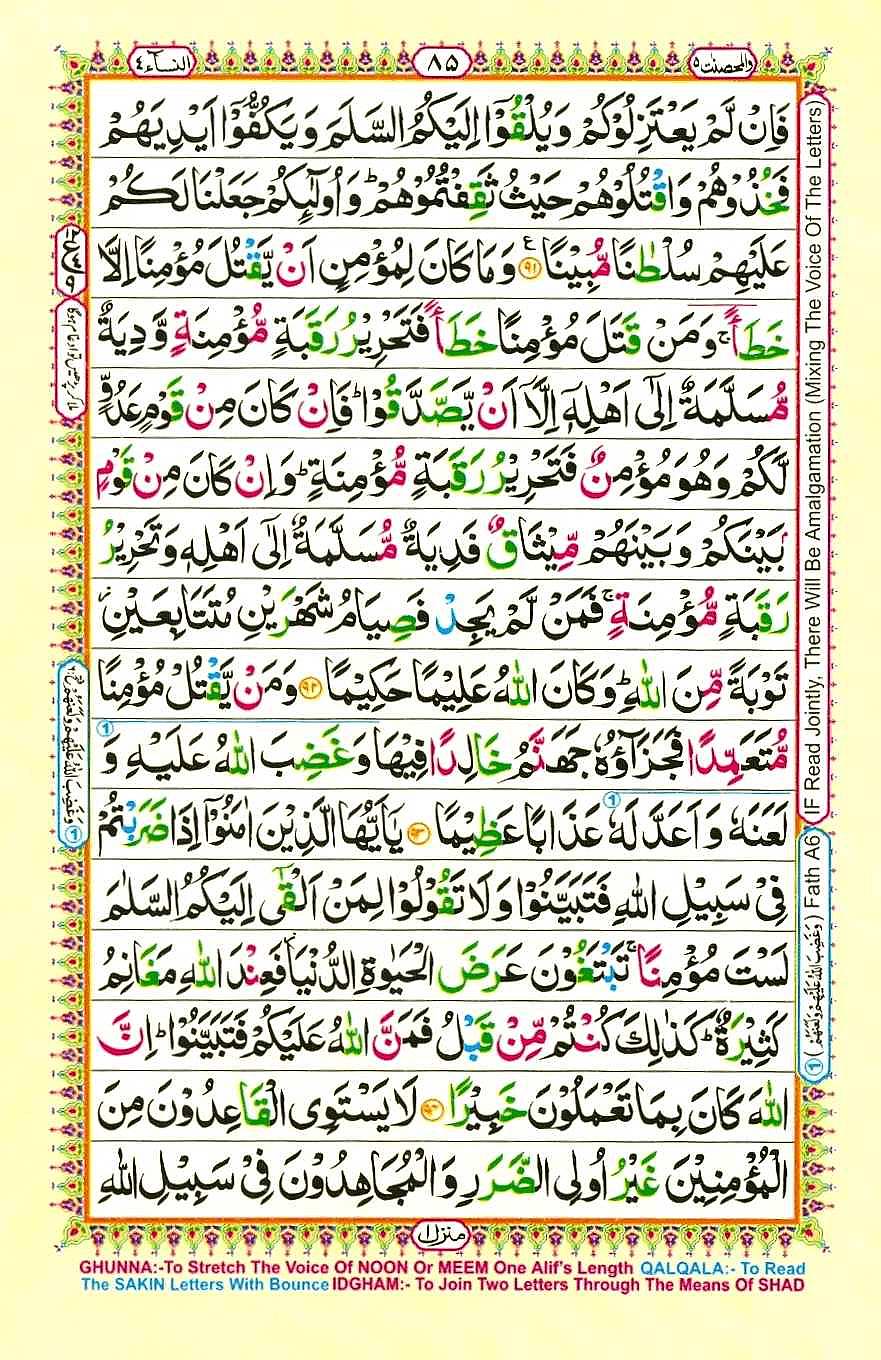 النسآء ٤
٨٥
والمحصنت ٥
فَاِنْ لَّمْ يَعْتَزِلُوْكُمْ وَيُلْقُوْٓا اِلَيْكُمُ السَّلَمَ وَيَكُفُّوْٓا اَيْدِيَهُمْ
فَخُذُوْهُمْ وَاقْتُلُوْهُمْ حَيْثُ ثَقِفْتُمُوْهُمْ ؕ وَاُولٰٓئِكُمْ جَعَلْنَا لَكُمْ
عَلَيْهِمْ سُلْطٰنًا مُّبِيْنًا ﴿٩١﴾ ع وَمَا كَانَ لِمُؤْمِنٍ اَنْ يَّقْتُلَ مُؤْمِنًا اِلَّا
خَطَـًٔا ۚ وَمَنْ قَتَلَ مُؤْمِنًا خَطَـًٔا فَتَحْرِيْرُ رَقَبَةٍ مُّؤْمِنَةٍ وَّدِيَةٌ
مُّسَلَّمَةٌ اِلٰٓى اَهْلِهٖٓ اِلَّآ اَنْ يَّصَّدَّقُوْا ؕ فَاِنْ كَانَ مِنْ قَوْمٍ عَدُوٍّ
لَّكُمْ وَهُوَ مُؤْمِنٌ فَتَحْرِيْرُ رَقَبَةٍ مُّؤْمِنَةٍ ؕ وَاِنْ كَانَ مِنْ قَوْمٍۭ
بَيْنَكُمْ وَبَيْنَهُمْ مِّيْثَاقٌ فَدِيَةٌ مُّسَلَّمَةٌ اِلٰٓى اَهْلِهٖ وَتَحْرِيْرُ
رَقَبَةٍ مُّؤْمِنَةٍ ۚ فَمَنْ لَّمْ يَجِدْ فَصِيَامُ شَهْرَيْنِ مُتَتَابِعَيْنِ ؗ
تَوْبَةً مِّنَ اللّٰهِ ؕ وَكَانَ اللّٰهُ عَلِيْمًا حَكِيْمًا ﴿٩٢﴾ وَمَنْ يَّقْتُلْ مُؤْمِنًا
مُّتَعَمِّدًا فَجَزَآؤُهٗ جَهَنَّمُ خَالِدًا فِيْهَا وَغَضِبَ اللّٰهُ عَلَيْهِ وَ
لَعَنَهٗ وَاَعَدَّ لَهٗ عَذَابًا عَظِيْمًا ﴿٩٣﴾ يٰٓاَيُّهَا الَّذِيْنَ اٰمَنُوْٓا اِذَا ضَرَبْتُمْ
فِيْ سَبِيْلِ اللّٰهِ فَتَبَيَّنُوْا وَلَا تَقُوْلُوْا لِمَنْ اَلْقٰٓى اِلَيْكُمُ السَّلٰمَ
لَسْتَ مُؤْمِنًا ۚ تَبْتَغُوْنَ عَرَضَ الْحَيٰوةِ الدُّنْيَا ؗ فَعِنْدَ اللّٰهِ مَغَانِمُ
كَثِيْرَةٌ ؕ كَذٰلِكَ كُنْتُمْ مِّنْ قَبْلُ فَمَنَّ اللّٰهُ عَلَيْكُمْ فَتَبَيَّنُوْا ؕ اِنَّ
اللّٰهَ كَانَ بِمَا تَعْمَلُوْنَ خَبِيْرًا ﴿٩٤﴾ لَا يَسْتَوِى الْقَاعِدُوْنَ مِنَ
الْمُؤْمِنِيْنَ غَيْرُ اُولِى الضَّرَرِ وَالْمُجَاهِدُوْنَ فِيْ سَبِيْلِ اللّٰهِ
منزل ١
IF Read Jointly, There Will Be Amalgamation (Mixing The Voice Of The Letters)
① (وَغَضِبَ اللّٰهُ عَلَيْهِمْ وَلَعَنَهُمْ) Fath A6
GHUNNA:-To Stretch The Voice Of NOON Or MEEM One Alif's Length QALQALA:- To Read
The SAKIN Letters With Bounce IDGHAM:- To Join Two Letters Through The Means Of SHAD